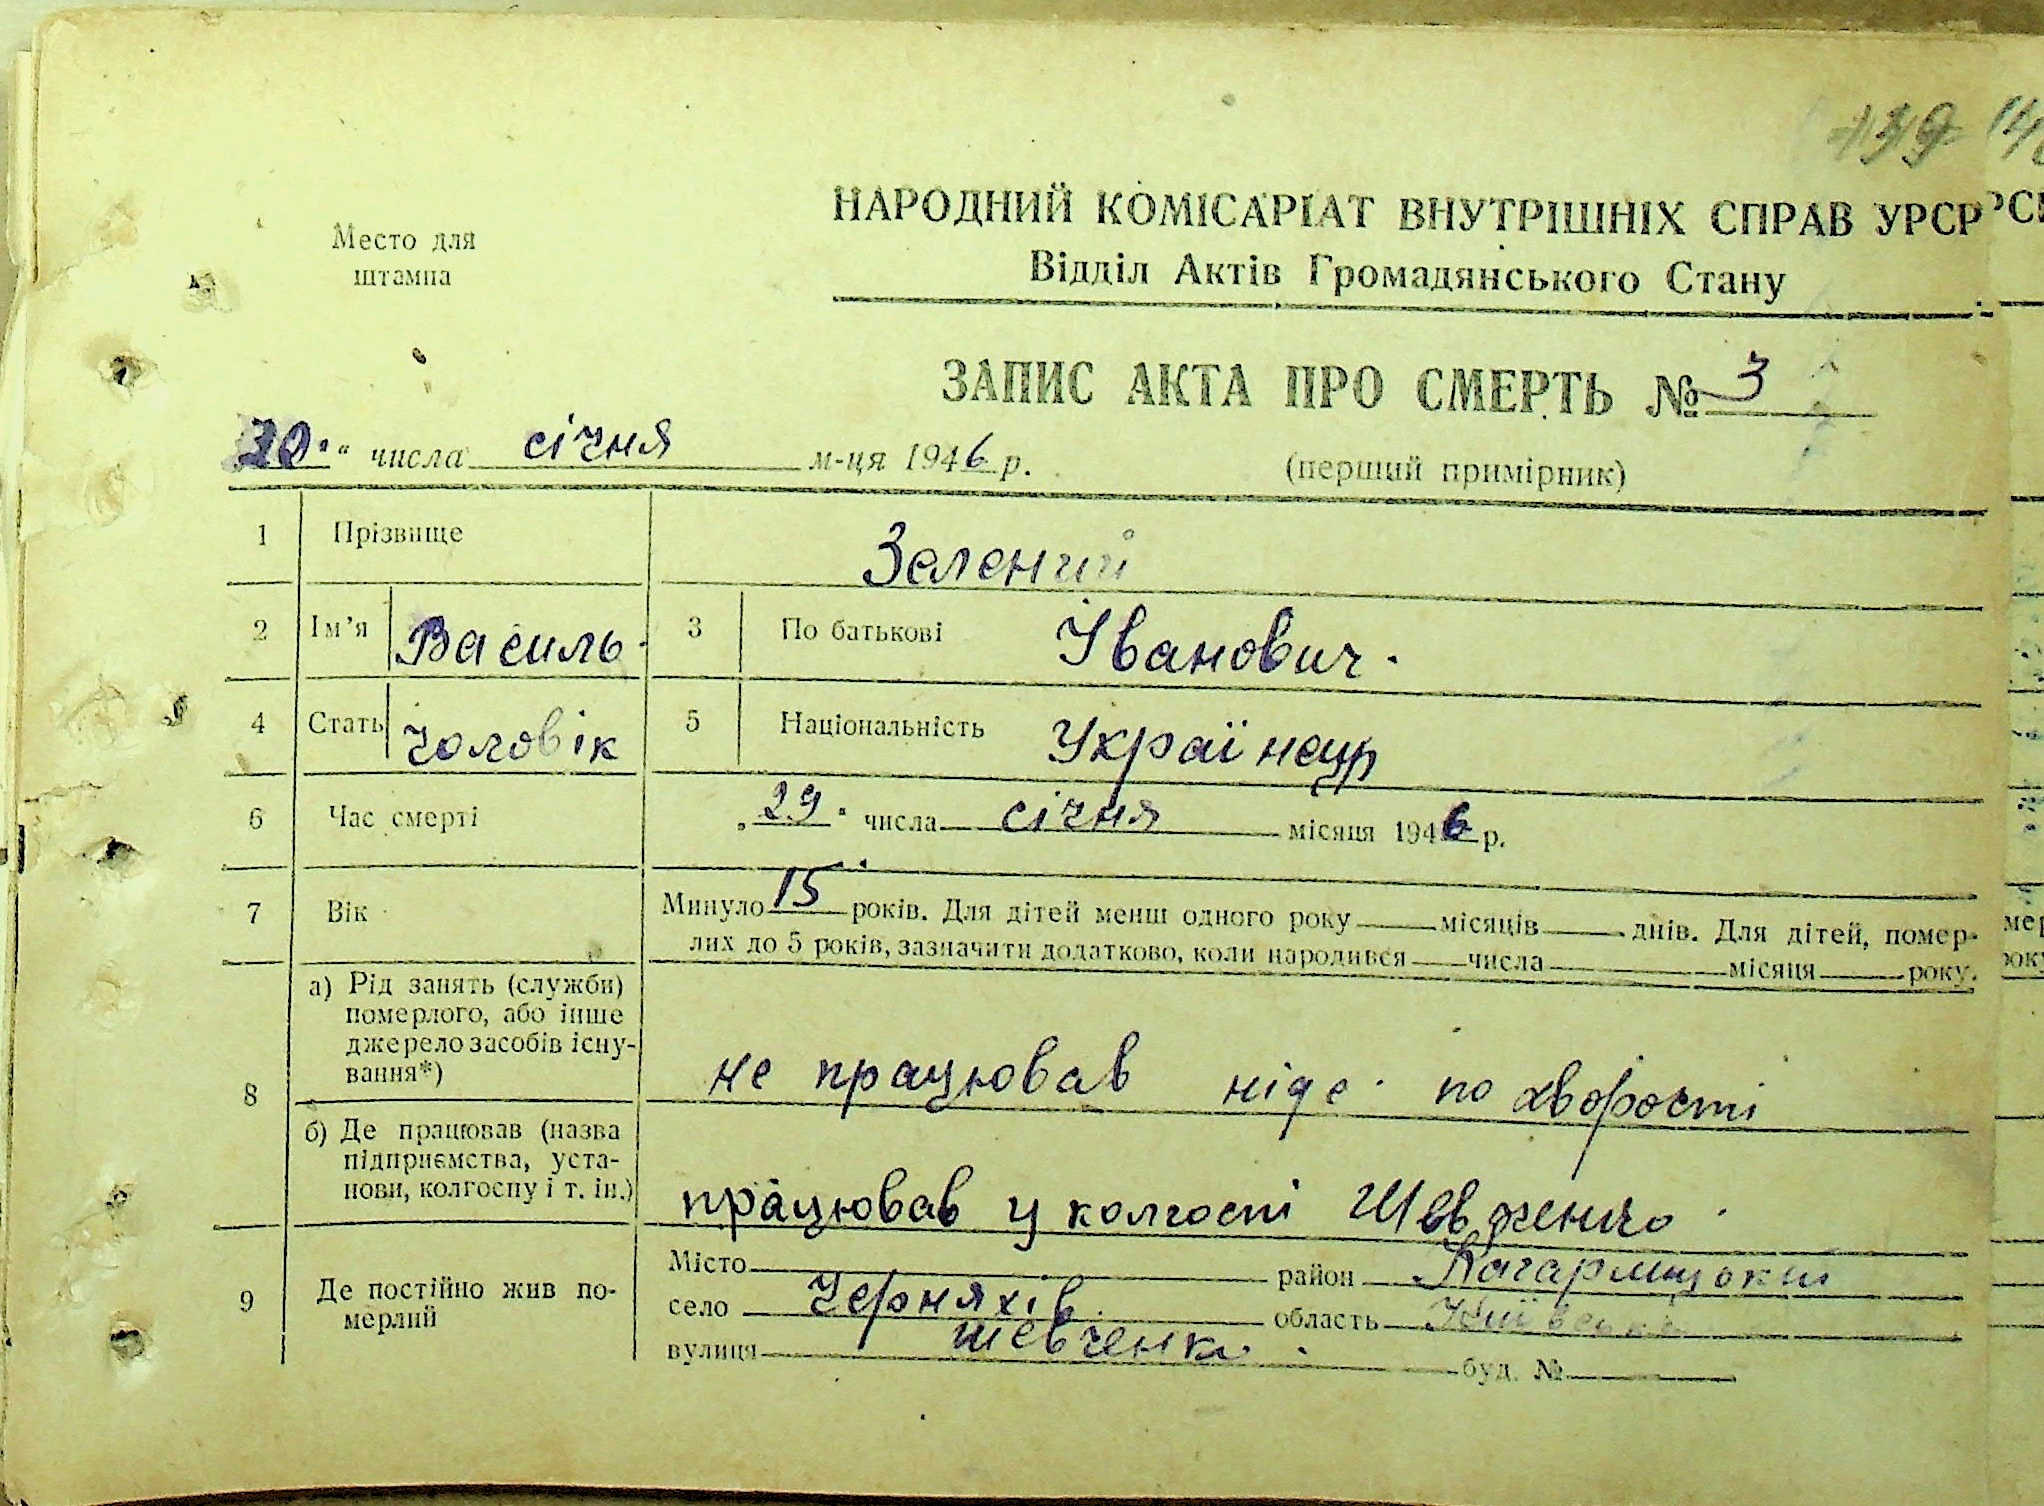 139
Место для
штампа
НАРОДНИЙ КОМІСАРІАТ ВНУТРІШНІХ СПРАВ УРСР
Відділ Актів Громадянського Стану
ЗАПИС АКТА ПРО СМЕРТЬ № 3
30 " числа січня м-ця 1946 р. (перший примірник)
1 Прізвище Зелений
2 Ім'я Василь 3 По батькові Іванович.
4 Стать чоловік 5 Національність Українець
6 Час смерті „29" числа січня місяця 1946 р.
7 Вік Минуло 15 років. Для дітей менш одного року місяців днів. Для дітей, помер-
лих до 5 років, зазначити додатково, коли народився числа місяця року.
8 а) Рід занять (служби)
померлого, або інше
джерело засобів існу-
вання*)
не працював ніде по хворості
б) Де працював (назва
підприємства, уста-
нови, колгоспу і т. ін.)
працював у колгоспі Шевченко.
9 Де постійно жив по-
мерлий
Місто район Кагарлицький
село Черняхів. область Київська
вулиця Шевченка. буд. №